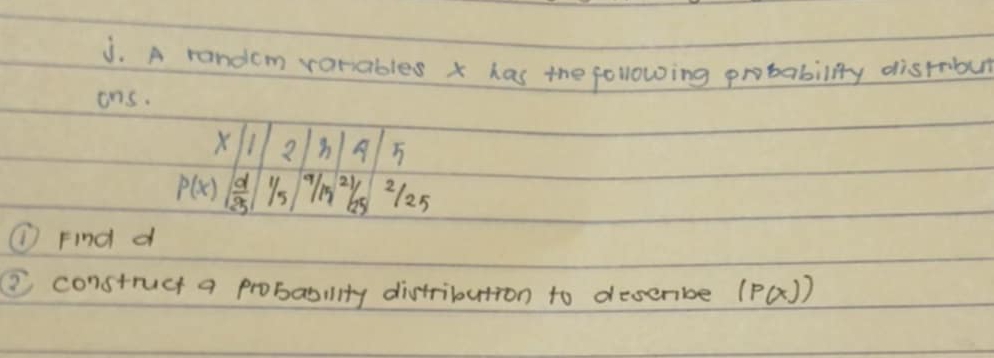 j. A random variables x has the following probability distribut
ons.
X | 1 | 2 | 3 | 4 | 5
P(x) | d/25 | 1/5 | 9/15 | 21/25 | 2/25
① Find d
② construct a probability distribution to describe (P(x))